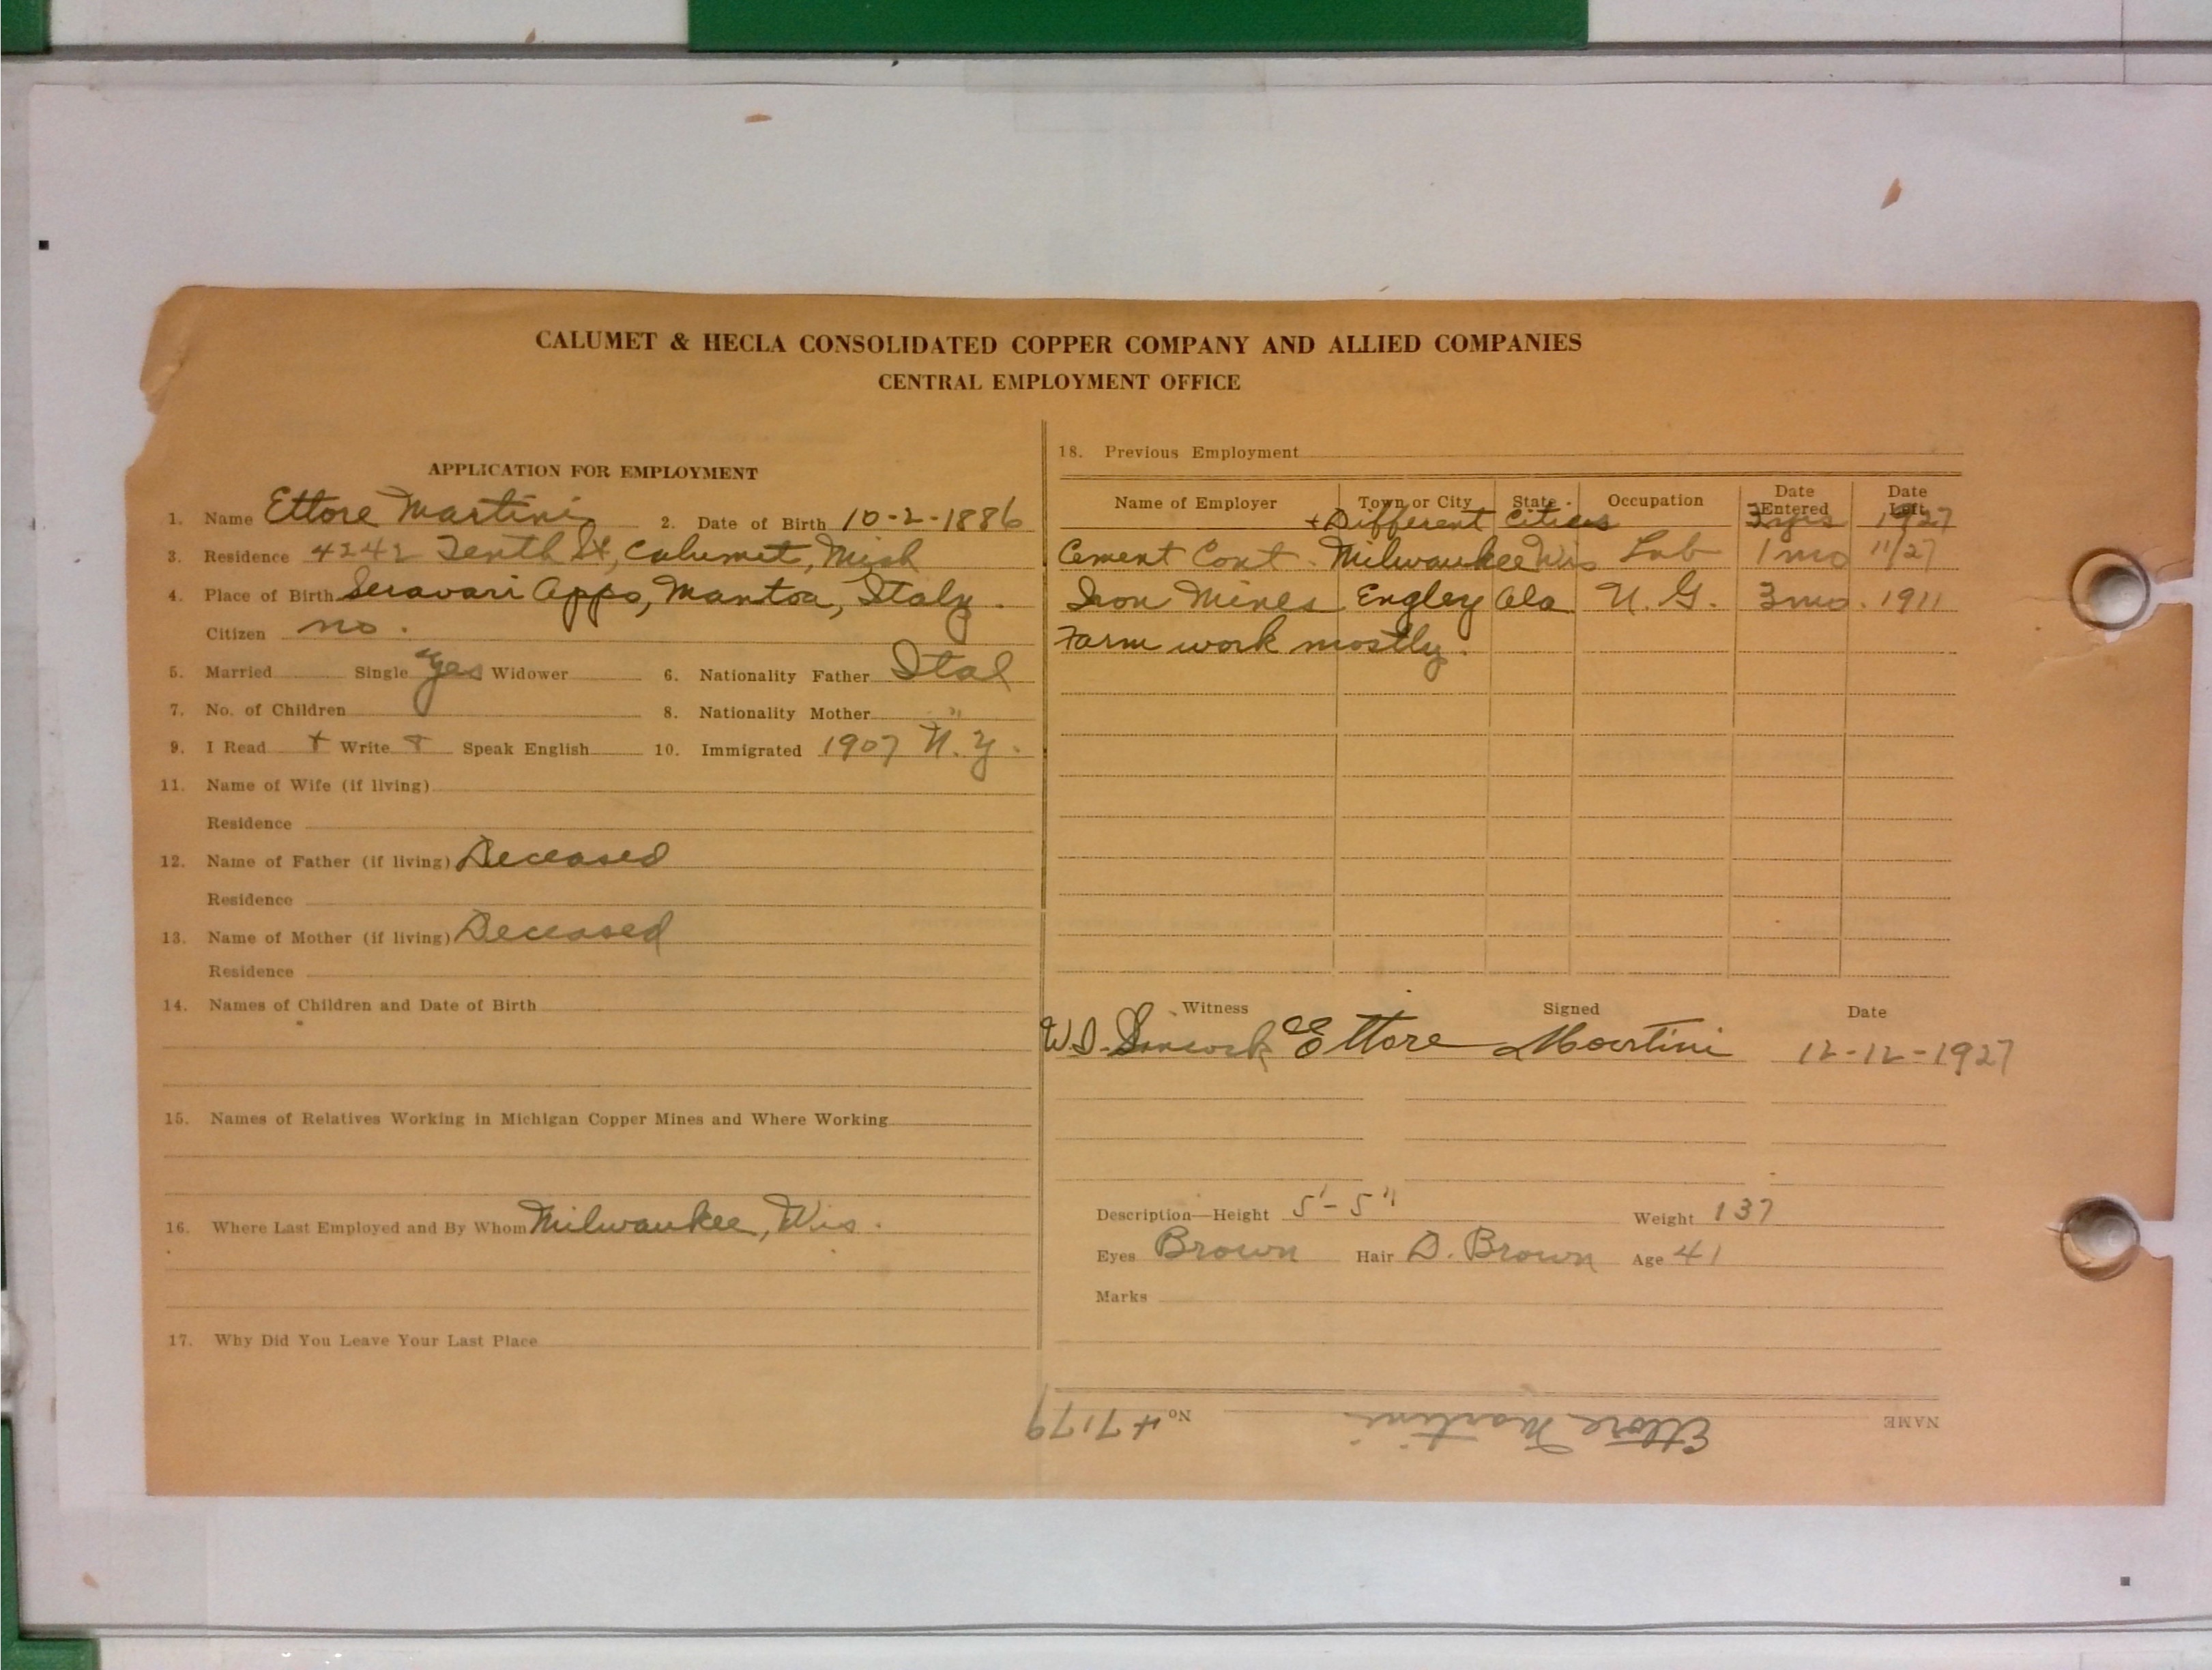 CALUMET & HECLA CONSOLIDATED COPPER COMPANY AND ALLIED COMPANIES
CENTRAL EMPLOYMENT OFFICE
APPLICATION FOR EMPLOYMENT
1. Name Ettore Martini 2. Date of Birth 10-2-1886
3. Residence 4242 Tenth St, Calumet, Mich
4. Place of Birth Seravari Appo, Mantoa, Italy.
Citizen no.
5. Married Single Yes Widower 6. Nationality Father Ital
7. No. of Children 8. Nationality Mother "
9. I Read + Write + Speak English 10. Immigrated 1907 N.Y.
11. Name of Wife (if living)
Residence
12. Name of Father (if living) Deceased
Residence
13. Name of Mother (if living) Deceased
Residence
14. Names of Children and Date of Birth
15. Names of Relatives Working in Michigan Copper Mines and Where Working
16. Where Last Employed and By Whom Milwaukee, Wis.
17. Why Did You Leave Your Last Place
18. Previous Employment
Name of Employer Town or City State Occupation Date Entered Date Left
+ Different Cities yrs 1927
Cement Cont. Milwaukee Wis Lab 1 mo 11/27
Iron Mines Engley Ala U.G. 3 mo. 1911
Farm work mostly.
Witness Signed Date
W.D. Ettore Martini 12-12-1927
Description—Height 5'-5" Weight 137
Eyes Brown Hair D. Brown Age 41
Marks
NAME Ettore Martini No. # 7179